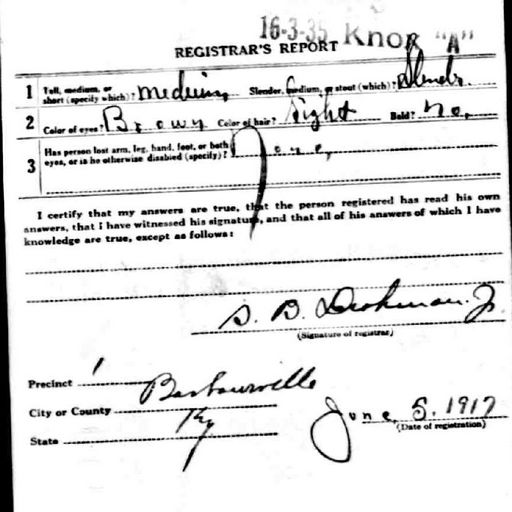 16-3-35 Knox "A"
REGISTRAR'S REPORT
1 Tall, medium, or short (specify which)? Medium, Slender, medium, or stout (which)? Slender.
2 Color of eyes? Brown Color of hair? Light Bald? No.
3 Has person lost arm, leg, hand, foot, or both
eyes, or is he otherwise disabled (specify)? None,
I certify that my answers are true, that the person registered has read his own
answers, that i have witnessed his signature, and that all of his answers of which I have
knowledge are true, except as follows:
S. B. Dishman. Jr.
(Signature of registrar)
Precinct 1
City or County Barbourville
State Ky
June 5. 1917
(Date of registration)